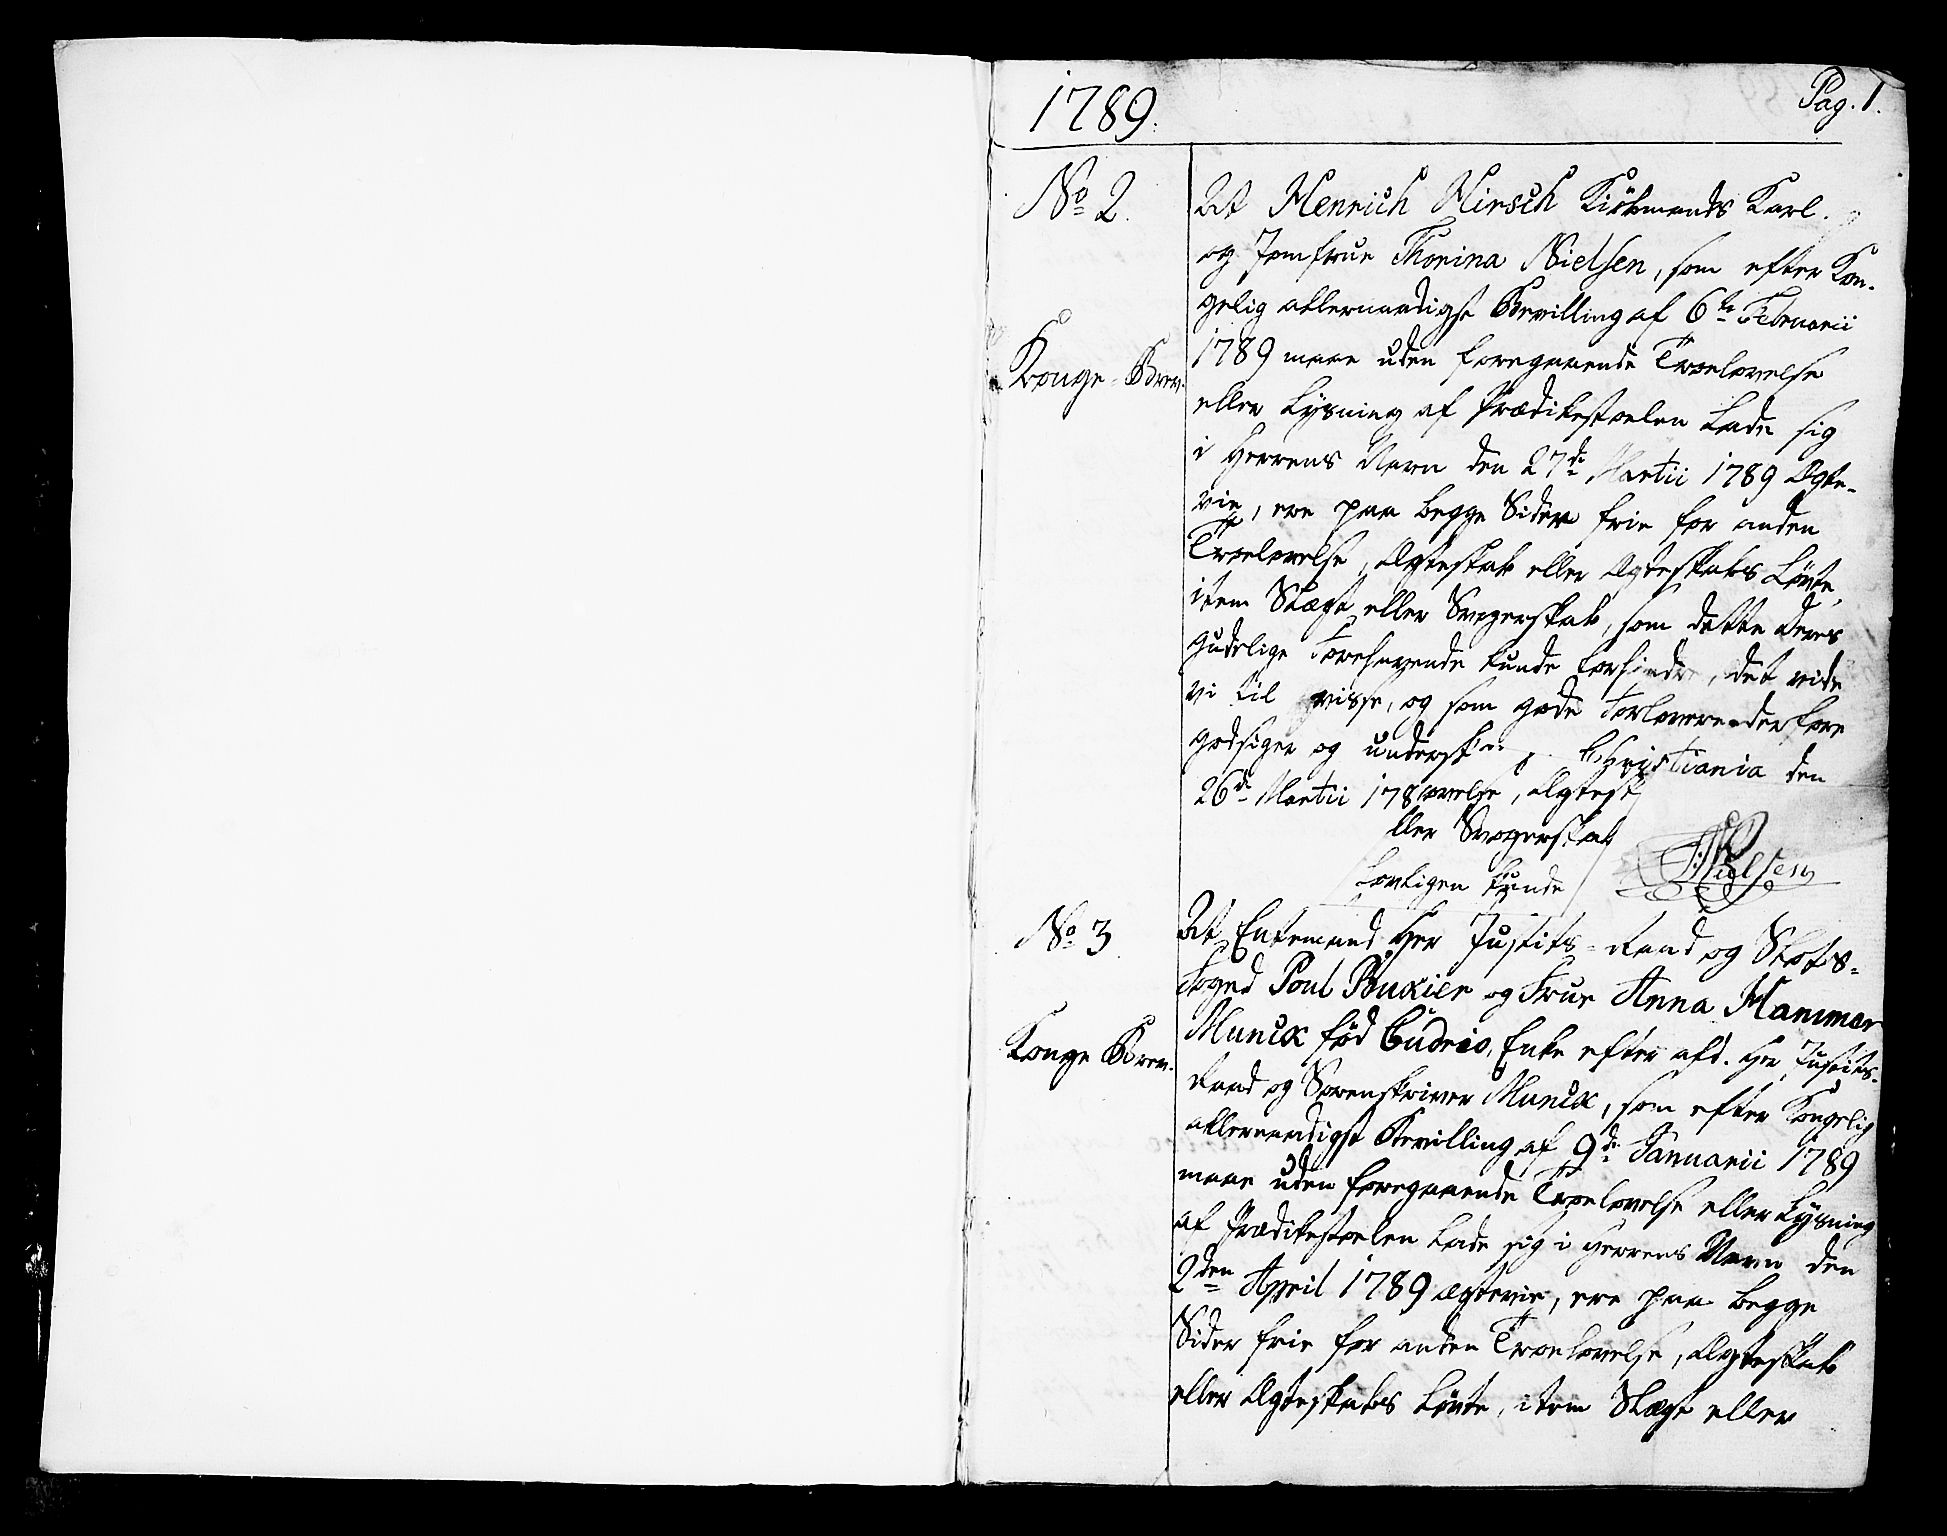 1789.
Pag. 1.
No 2.
Konge-Brev.
At Henrich Hirsch Kiøbmands Karl
og Jomfrue Thorina Nielsen, som efter Kon-
gelig allernaadigst Bevilling af 6te Februarii
1789 maae uden foregaaende Troelovelse
eller Lysning af Prædikestoelen Lade sig
i Herrens Navn den 27de Martii 1789 Ægte-
vie, ere paa begge Sider frie for anden
Troelovelse, Ægteskab eller Ægteskabs Løvte,
item Slægt eller Svogerskab, som dette deres
gudelige Forehavende kunde forhindre, det vide
vi til visse, og som gode Forlovere derfore
godsiger og undersk
Christiania den
26de Martii 178
ovelse, Ægtesk
ller Svogerskab
Lovligen kunde
Nielsen
No 3.
Konge Brev.
At Enkemand Her Justits-Raad og Slots-
Foged Poul Bukier og Frue Anna Hammer
Munck fød Cudrio, Enke efter afd. Her Justits-
Raad og Sorenskriver Munck, som efter Kongelig
allernaadigst Bevilling af 9de Januarii 1789
maae uden foregaaende Troelovelse eller Lysning
af Prædikestoelen Lade sig i Herrens Navn den
2den April 1789 ægtevie, ere paa begge
Sider frie for anden Troelovelse, Ægteskab
eller Ægteskabs Løvte, item Slægt eller